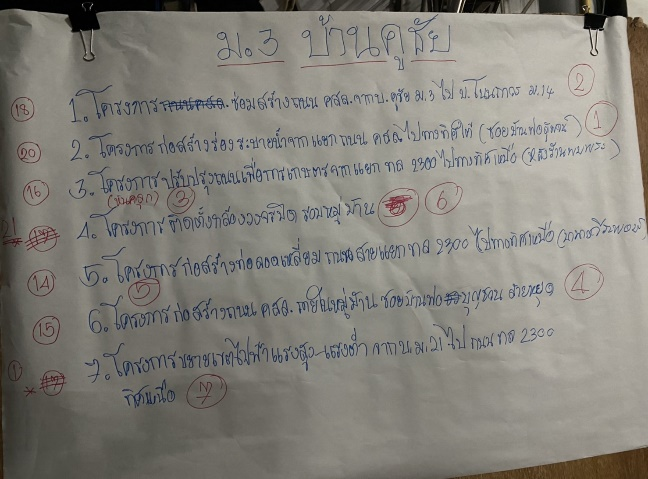 ม.3 บ้านคูชัย
18 1. โครงการซ่อมสร้างถนน คสล. จาก บ.คูชัย ม.3 ไป บ.โนนถาวร ม.14 2
20 2. โครงการก่อสร้างร่องระบายน้ำจากแยกถนน คสล. ไปทางทิศใต้ (ซอยบ้านพ่อ 1
16 3. โครงการปรับปรุงถนนเพื่อการเกษตรจากแยก ทล 2300 ไปทางทิศเหนือ
(ขุนคลุก) 3
21 4. โครงการติดตั้งกล้องวงจรปิด ซอยหมู่บ้าน 6
14 5. โครงการก่อสร้างท่อลอดเหลี่ยม ถนนสายแยก ทล 2300 ไปทางทิศเหนือ
5
15 6. โครงการก่อสร้างถนน คสล. ภายในหมู่บ้าน ซอยบ้านพ่อบุญชวน สายหยุด 4
1 7. โครงการขยายเขตไฟฟ้าแรงสูง-แรงต่ำ จาก ม.21 ไป ถนน ทล 2300
ทิศเหนือ 7